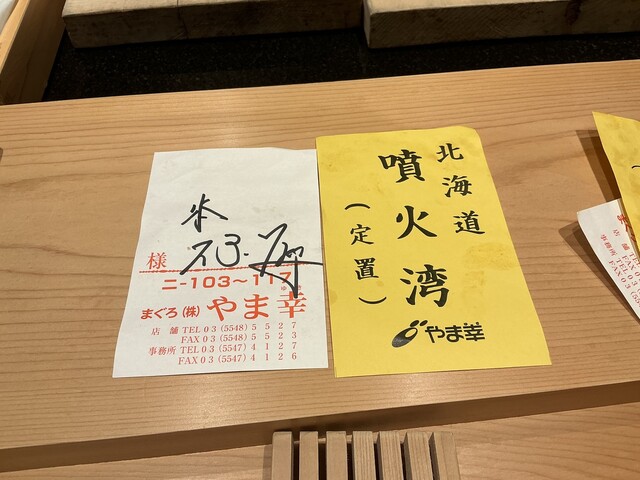 様
ニ-103～117
まぐろ(株)やま幸
店舗 TEL03(5548)5527
FAX03(5548)5523
事務所 TEL03(5547)4127
FAX03(5547)4126
北海道
噴火湾
(定置)
やま幸